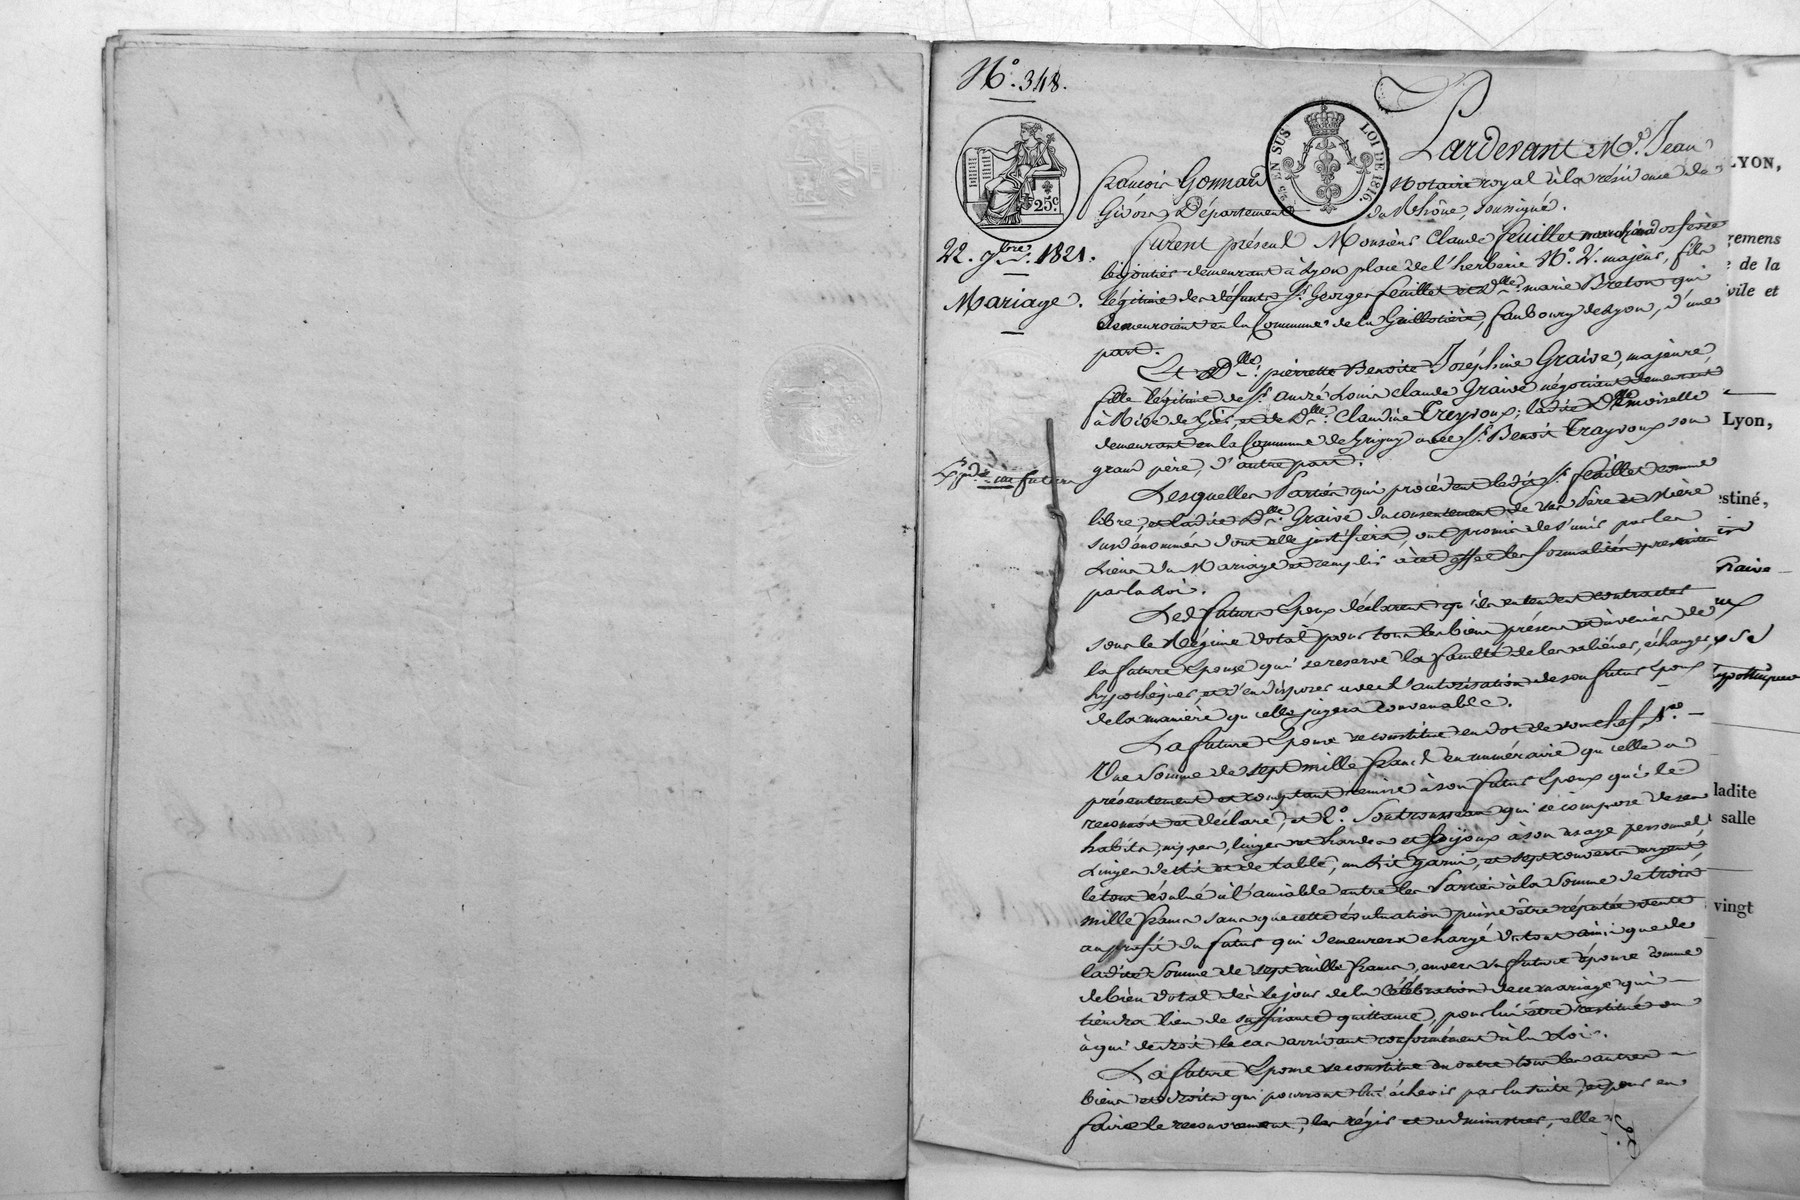 N.º 348.
25 EN SUS LOI DE 1816.
25.c
22. 9bre. 1821.
Mariage.
Pardevant Me. Jean
françois Gonnard Notaire royal à la résidence de
Givors Département du Rhône, soussigné.
furent présent Monsieur Claude feuillet marchand orfèvre
bijoutier demeurant à Lyon place de l'herberie N.º 2. majeur, fils
légitime des défunts Sr. Georges feuillet et Dlle. marie Breton qui
demeuroient en la Commune de la Guillotière, faubourg de Lyon, d'une
part.
Et Dlle. pierrette Benoite Joséphine Graive, majeure,
fille légitime de Sr. André Louis Claude Graive négociant demeurant
à Rive de Gier, et de Dlle. Claudine Treyvoux; ladite Demoiselle
demeurant en la Commune de Grigny avec Sr. Benoit Trayvoux son
grand père, d'autre part.
Lesquelles Parties qui procédent ledit Sr. feuillet comme
libre, et ladite Dlle. Graive du consentement de ses Père et Mère
susdénommés dont elle justifiera, ont promis de s'unir par les
Liens du Mariage et remplir à cet effet les formalités prescrites
par la Loi.
Les futurs Epoux déclarent qu'ils entendent contracter
sous le Régime dotal pour tous les biens présens et à venir de
la future Epouse qui se reserve la faculté de les aliéner, échanger,
hypothéquer, et d'en disposer avec l'autorisation de son futur Epoux
de la manière qu'elle jugera convenable.
La future Epouse se constitue en dot de son chef, 1.º
Une Somme de sept mille francs en numéraire qu'elle a
présentement et comptant remise à son futur Epoux qui le
reconnoit et déclare, et 2.º Son trousseau qui se compose de ses
habits, nippes, linges et hardes et bijoux à son usage personnel,
Linges de lit et de table, un Lit garni, et sept couverts argent,
le tout évalué à l'amiable entre les Parties à la Somme de trois
mille francs sans que cette évaluation puisse être réputée vente
au profit du futur qui demeurera chargé du tout ainsi que de
ladite Somme de sept mille francs, envers sa future épouse comme
de bien dotal dès le jour de la célébration de ce mariage qui
tiendra lieu de suffisante quittance, pour lui être restitué ou
à qui de droit le cas arrivant conformément à la Loi.
La future Epouse se constitue en outre tous les autres
biens et droits qui pourront lui échoir par la suite, et pour en
faire le recouvrement, les régir et administrer, elle
LYON,
gemens
de la
vile et
Lyon,
estiné,
Graive
ladite
salle
vingt